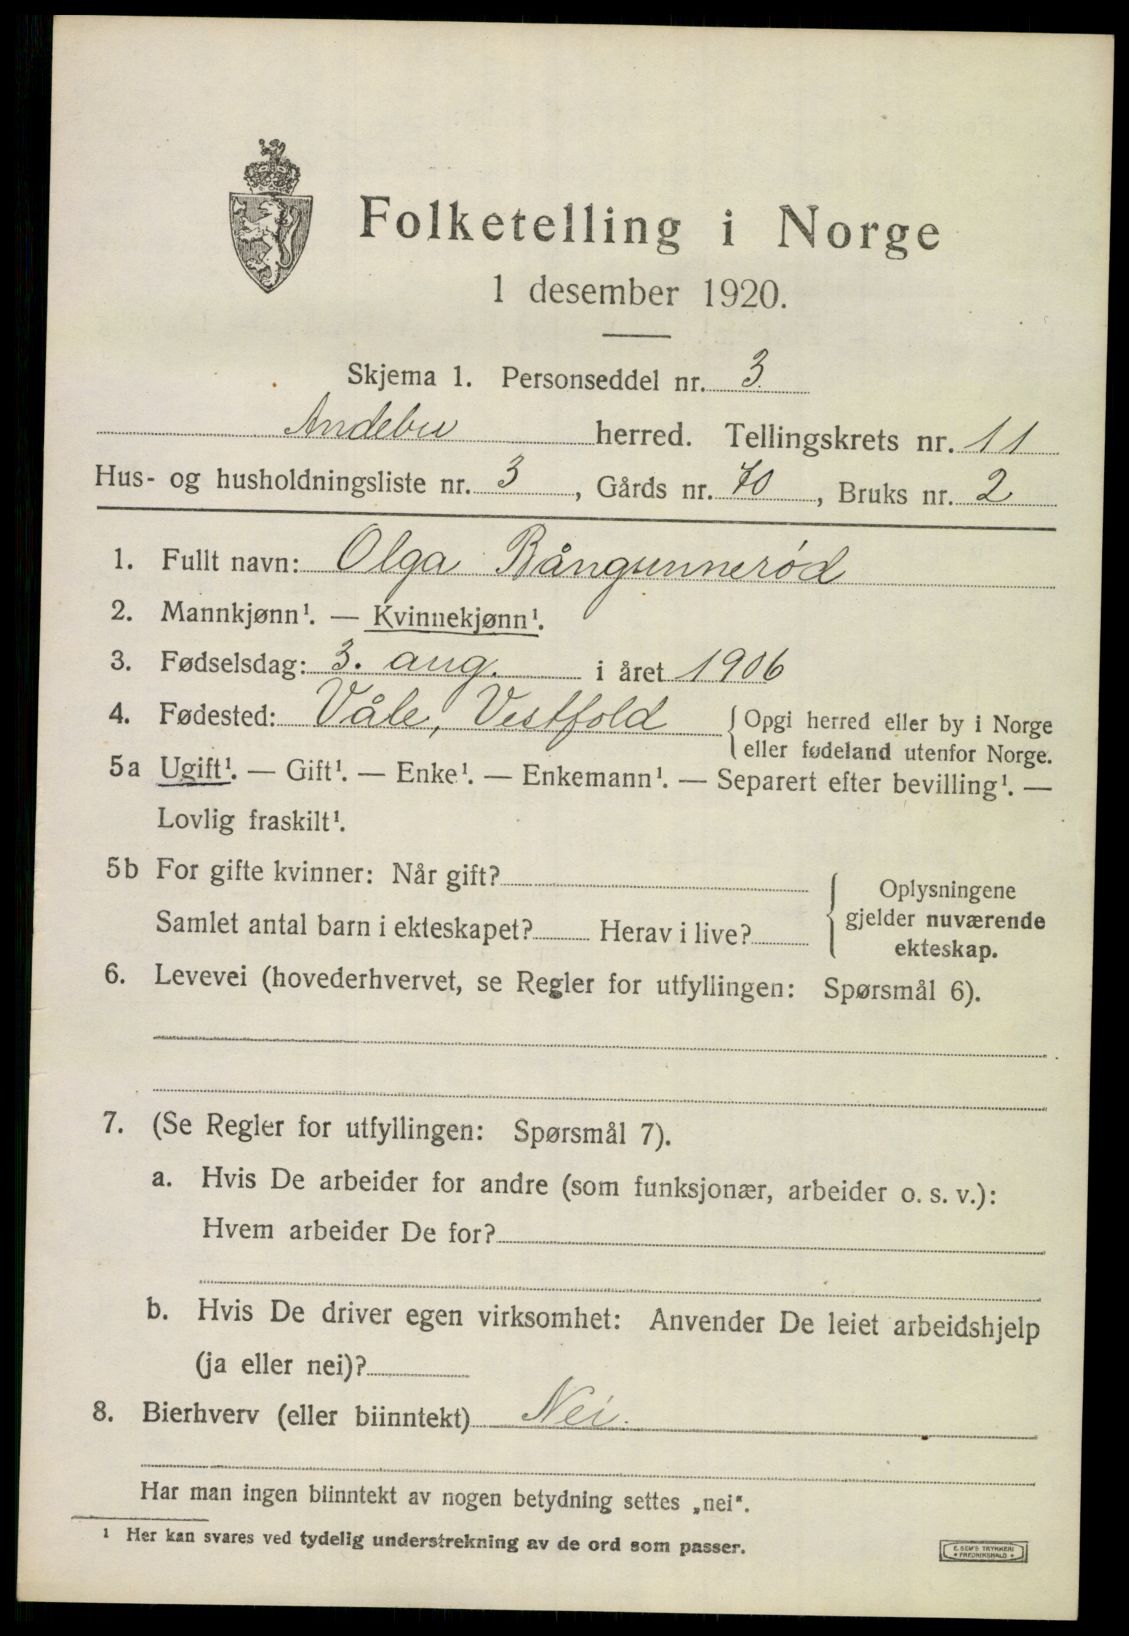 Folketelling i Norge
1 desember 1920.
Skjema 1. Personseddel nr. 3
Andebu herred. Tellingskrets nr. 11
Hus- og husholdningsliste nr. 3, Gårds nr. 70, Bruks nr. 2
1. Fullt navn: Olga Bångsunnerød
2. Mannkjønn¹. — Kvinnekjønn¹.
3. Fødselsdag: 3. aug. i året 1906
4. Fødested: Våle, Vestfold { Opgi herred eller by i Norge
eller fødeland utenfor Norge.
5a Ugift¹. — Gift¹. — Enke¹. — Enkemann¹. — Separert efter bevilling¹. —
Lovlig fraskilt¹.
5b For gifte kvinner: Når gift?
Samlet antal barn i ekteskapet? Herav i live?
{ Oplysningene
gjelder nuværende
ekteskap.
6. Levevei (hovederhvervet, se Regler for utfyllingen: Spørsmål 6).
7. (Se Regler for utfyllingen: Spørsmål 7).
a. Hvis De arbeider for andre (som funksjonær, arbeider o. s. v.):
Hvem arbeider De for?
b. Hvis De driver egen virksomhet: Anvender De leiet arbeidshjelp
(ja eller nei)?
8. Bierhverv (eller biinntekt) Nei.
Har man ingen biinntekt av nogen betydning settes „nei“.
¹ Her kan svares ved tydelig understrekning av de ord som passer.
E. SEM'S TRYKKERI
* FREDRIKSHALD *